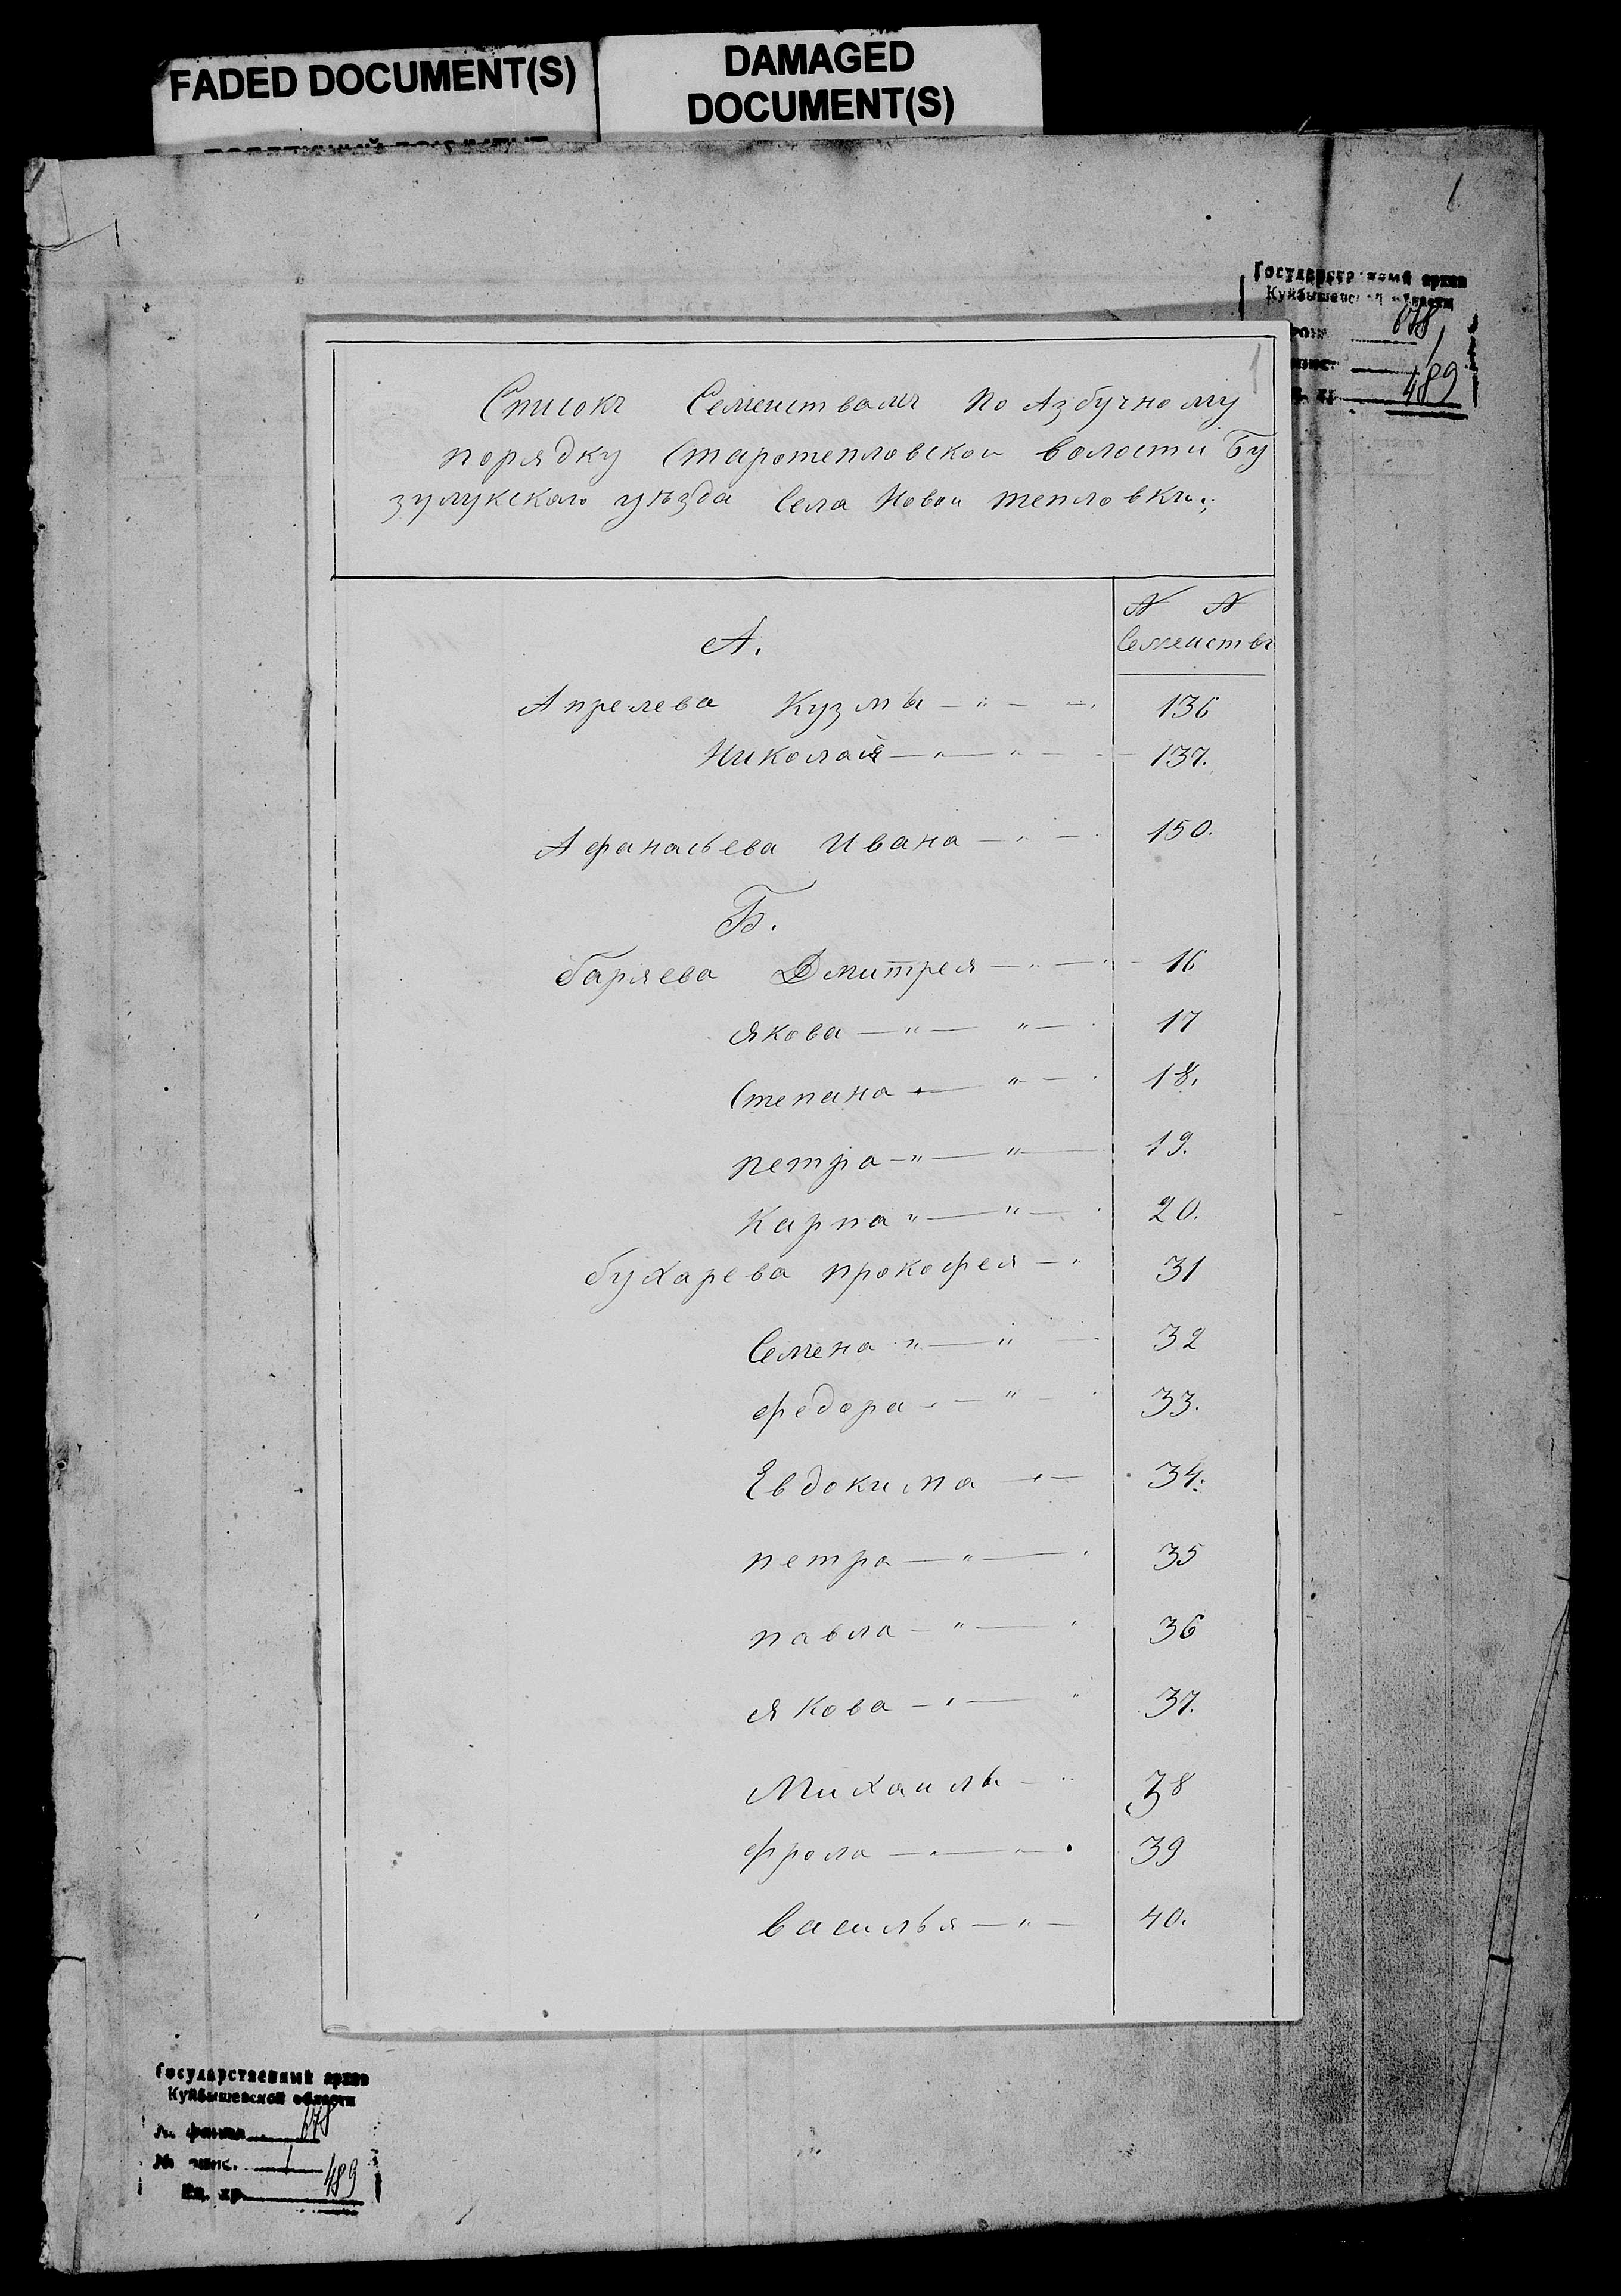 FADED DOCUMENT(S)
DAMAGED
DOCUMENT(S)
1
Государственный архив
Куйбышевской области
678
1
489
1
Списокъ Семеиствамъ по Азбучному
порядку Старотепловскои волости Бу
зулукскаго уѣзда Села Новои тепловки.
N N
Семеиствъ
А.
Апрелева Кузмы 136
Николая 137.
Афанасьева Ивана 150.
Б.
баряева Дмитрея 16
якова 17
Степана 18.
петра 19.
Карпа 20.
бухарева прокофея 31
Семена 32
федора 33.
Евдокима 34.
петра 35
павла 36
якова 37.
Михаилы 38
фрола 39
василья 40.
Государственный архив
Куйбышевской области
№ фонда 678
№ опис. 1
Ед. хр. 489